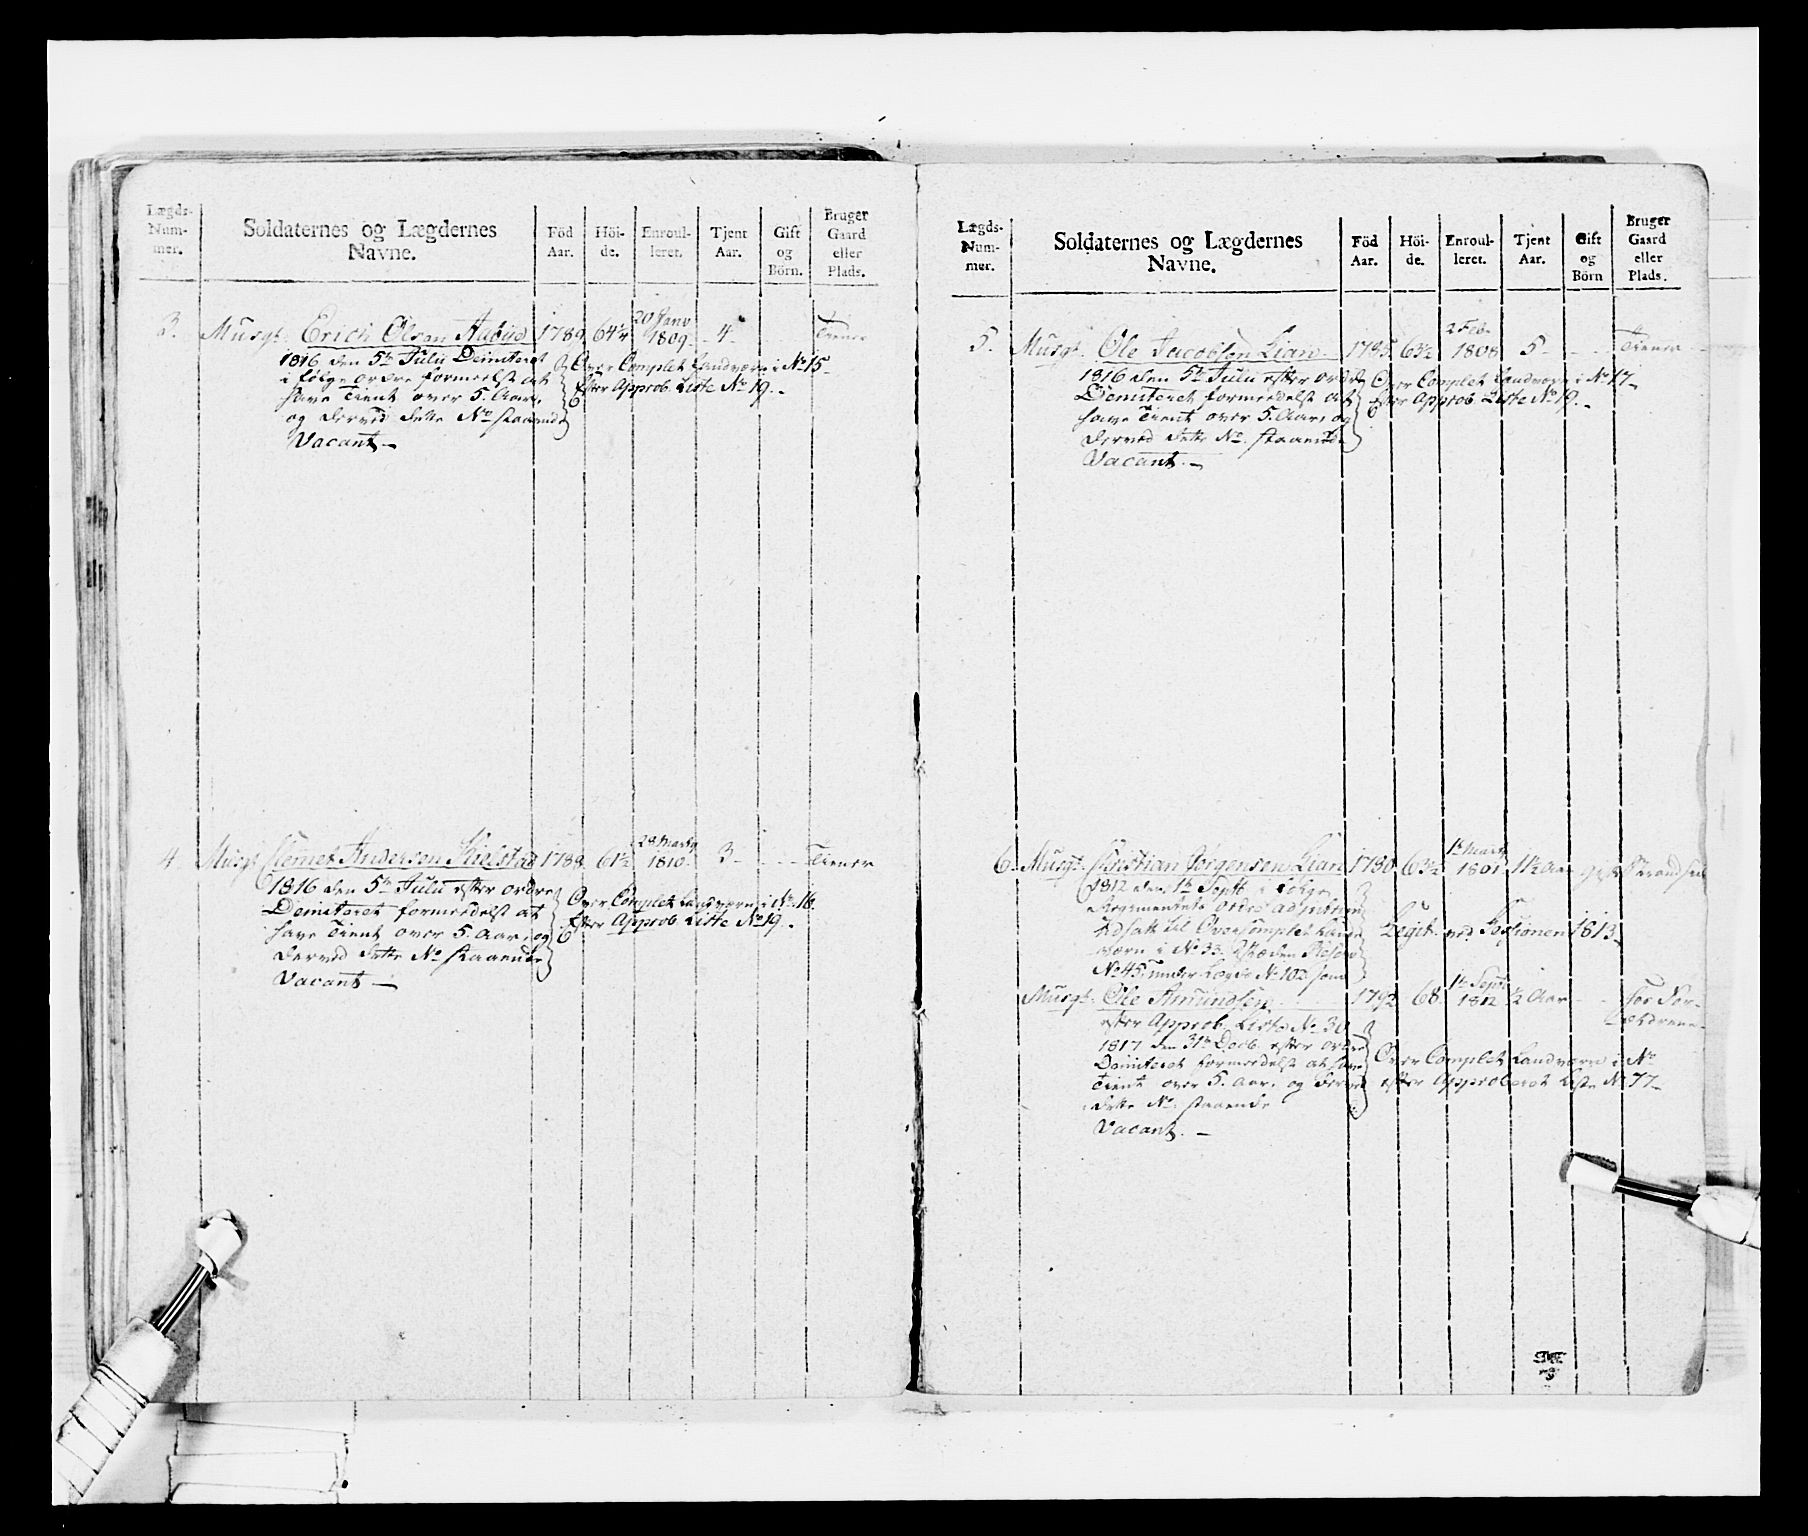 Lægds-
Num-
mer.
Soldaternes og Lægdernes
Navne.
Föd
Aar.
Höi-
de.
Enroul-
leret.
Tjent
Aar.
Gift
og
Börn.
Bruger
Gaard
eller
Plads.
3. Musqt. Erich Olsen 1789 64¼ 20 Janv 1809 4 Tiener
1816 den 5te Julii Demiteret
i følge ordre formedelst at
have Tient over 5. Aar,
og derved dette No staaende
Vacant
Over Complet Landværn i No 15
Efter Approb. Liste No 19.
4 Musqt Clemet Andersen Kielstad 1788 61½ 28 Marty 1810 3 Tiener
1816 den 5te Julii efter ordre
Demiteret formedelst at
have Tient over 5. Aar, og
derved dette No staaende
Vacant
Over Complet Landværn i No 16.
Efter Approb. Liste No 19.
Lægds-
Num-
mer.
Soldaternes og Lægdernes
Navne.
Föd
Aar.
Höi-
de.
Enroul-
leret.
Tjent
Aar.
Gift
og
Börn
Bruger
Gaard
eller
Plads.
5. Musqt. Ole Jacobsen Lian 1785 63½ 2 Feb. 1808 5 Tiener
1816 den 5te Julii efter ordre
Demiteret formedelst at
have Tient over 5. Aar, og
derved dette No. staaende
Vacant.
Over Complet Landværn i No 17
Efter Approb. Liste No 19.
6 Musqt. Christian Jørgensen Lian 1780 63½ 1te Marty 1801 11½ Aar gift
1812 den 1te Septb i følge
Regimentets ordre
Udsatt til Overcomplet Land
værn i No 33.
No 45, under Lægds No 102 som
Legit. ved Sessionen 1813
Musqt. Ole Amundsen 1792 68. 1te Septr 1812 ½ Aar For For-
ældrene
efter Approb. Liste No 30
1817 den 31te Decb. efter ordre
Demiteret formedelst at have
Tient over 5. Aar, og derved
dette No. staaende
Vacant.
Over Complet Landværn i No
efter Approberet Liste No 77